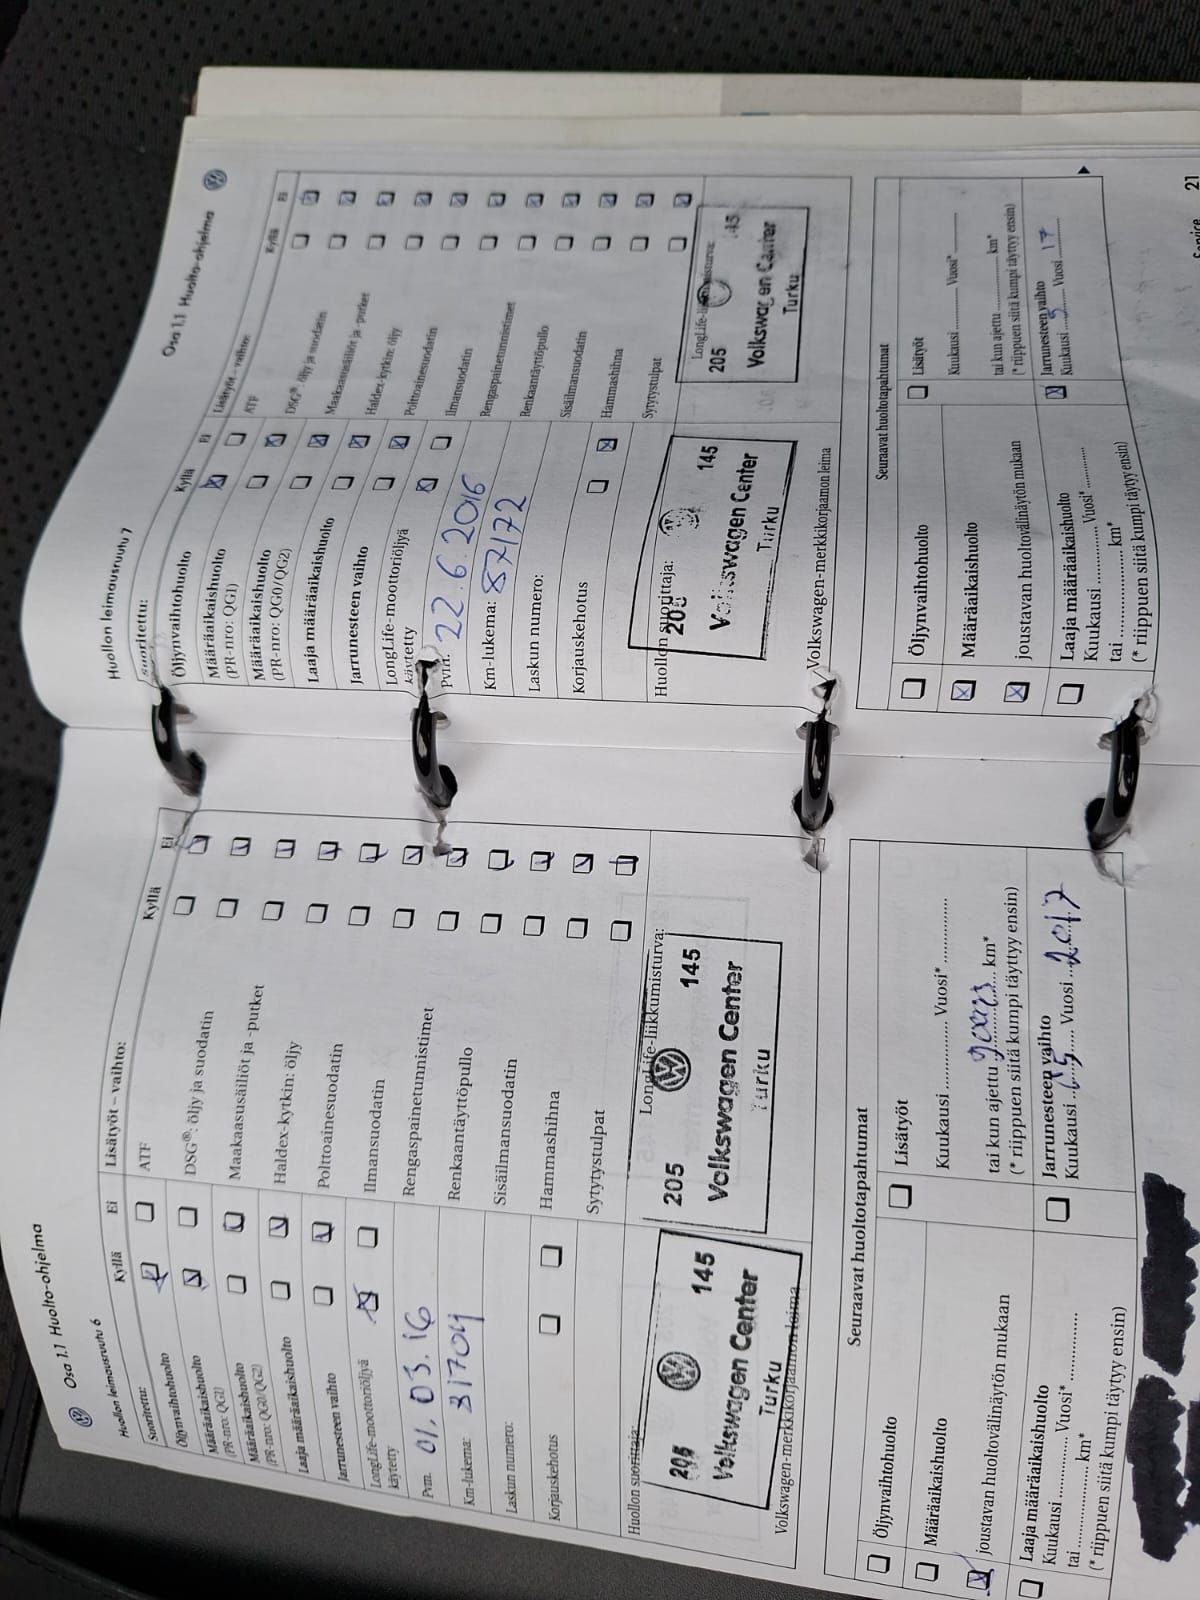 Osa 1.1 Huolto-ohjelma
Huollon leimausruutu 6
Suoritettu:
Kyllä
Ei
Öljynvaihtohuolto
Määräaikaishuolto
(PR-nro: QG1)
Määräaikaishuolto
(PR-nro: QG0/QG2)
Laaja määräaikaishuolto
Jarrunesteen vaihto
LongLife-moottoriöljyä
käytetty
Pvm. 01.03.16
Km-lukema: 31704
Laskun numero:
Korjauskehotus
Huollon suorittaja:
205 145
Volkswagen Center
Turku
Volkswagen-merkkikorjaamon leima
Lisätyöt – vaihto:
Kyllä
Ei
ATF
DSG®: öljy ja suodatin
Maakaasusäiliöt ja -putket
Haldex-kytkin: öljy
Polttoainesuodatin
Ilmansuodatin
Rengaspainetunnistimet
Renkaantäyttöpullo
Sisäilmansuodatin
Hammashihna
Sytytystulpat
LongLife-liikkumisturva:
205 145
Volkswagen Center
Turku
Seuraavat huoltotapahtumat
Öljynvaihtohuolto
Määräaikaishuolto
joustavan huoltovälinäytön mukaan
Laaja määräaikaishuolto
Kuukausi ............ Vuosi* ............
tai .................... km*
(* riippuen siitä kumpi täytyy ensin)
Lisätyöt
Kuukausi ............ Vuosi* ............
tai kun ajettu ............ km*
(* riippuen siitä kumpi täyttyy ensin)
Jarrunesteen vaihto
Kuukausi 05 Vuosi 2017
Osa 1.1 Huolto-ohjelma
Huollon leimausruutu 7
suoritettu:
Kyllä
Ei
Öljynvaihtohuolto
Määräaikaishuolto
(PR-nro: QG1)
Määräaikaishuolto
(PR-nro: QG0/QG2)
Laaja määräaikaishuolto
Jarrunesteen vaihto
LongLife-moottoriöljyä
käytetty
Pvm. 22.6.2016
Km-lukema: 87172
Laskun numero:
Korjauskehotus
Huollon suorittaja:
205 145
Volkswagen Center
Turku
Volkswagen-merkkikorjaamon leima
Lisätyöt – vaihto:
Kyllä
Ei
ATF
DSG®: öljy ja suodatin
Maakaasusäiliöt ja -putket
Haldex-kytkin: öljy
Polttoainesuodatin
Ilmansuodatin
Rengaspainetunnistimet
Renkaantäyttöpullo
Sisäilmansuodatin
Hammashihna
Sytytystulpat
205 145
Volkswagen Center
Turku
Seuraavat huoltotapahtumat
Öljynvaihtohuolto
Määräaikaishuolto
joustavan huoltovälinäytön mukaan
Laaja määräaikaishuolto
Kuukausi ............ Vuosi* ............
tai .................... km*
(* riippuen siitä kumpi täytyy ensin)
Lisätyöt
Kuukausi ............ Vuosi* ............
tai kun ajettu ............ km*
(* riippuen siitä kumpi täyttyy ensin)
Jarrunesteen vaihto
Kuukausi 5 Vuosi 17
Service 21